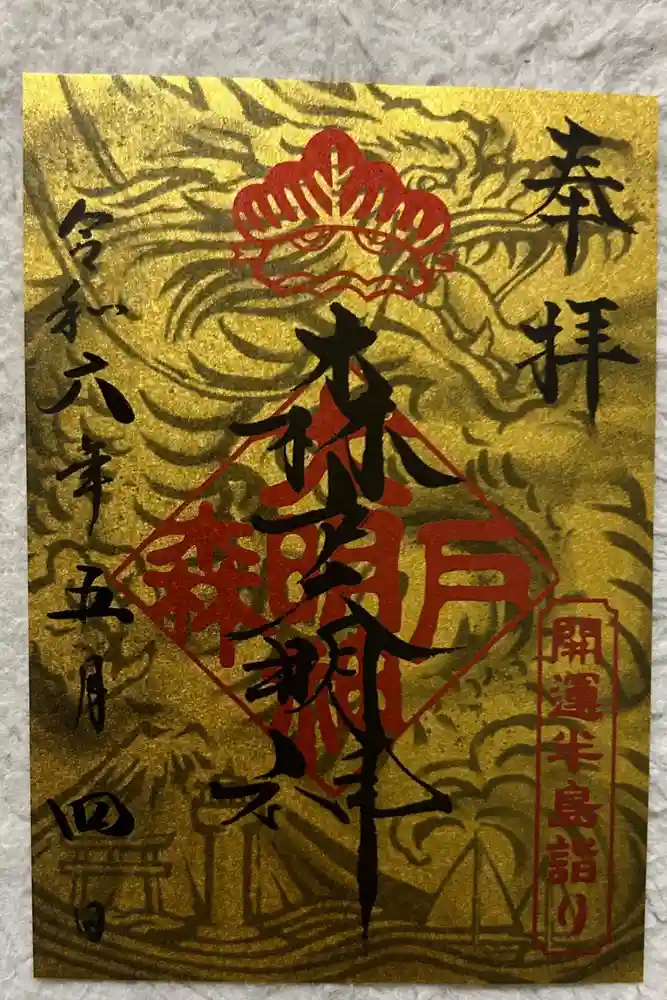 奉拝
開運半島詣り
森戸大明神
森戸大明神
令和六年五月四日